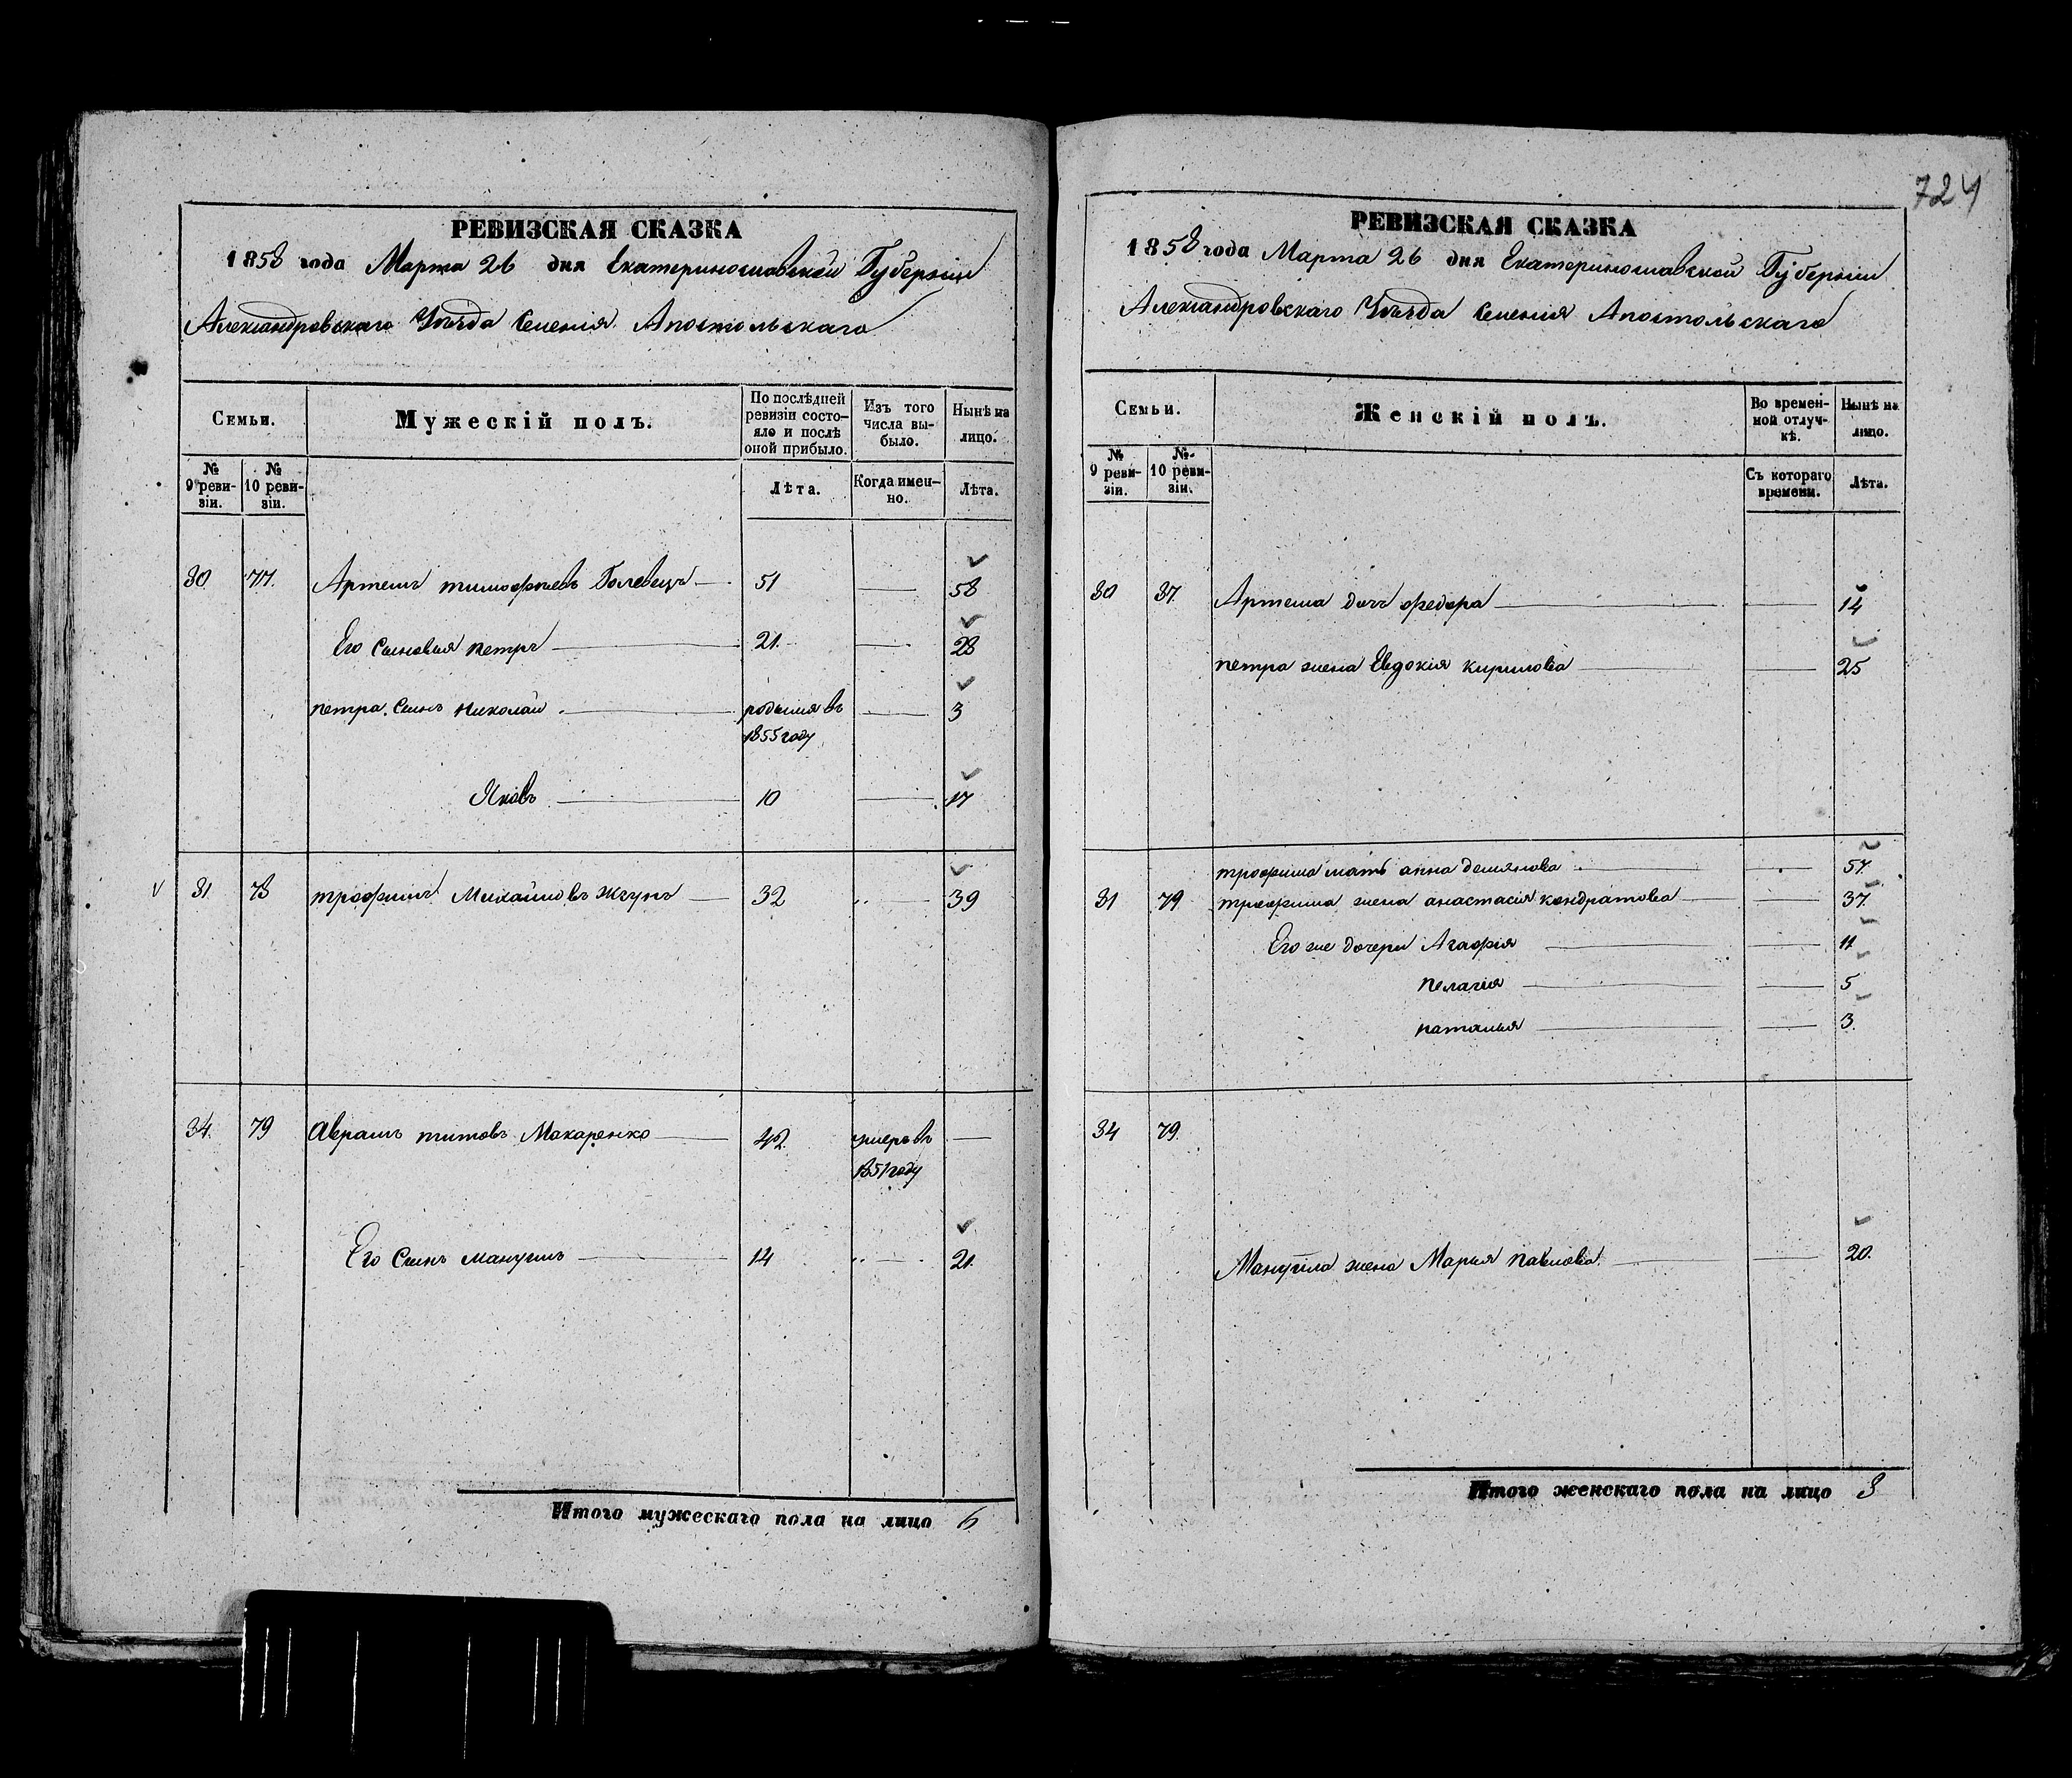 724
РЕВИЗСКАЯ СКАЗКА
1858 года Марта 26 дня Екатеринославской Губерніи
Александровскаго Уѣзда Селенія Апостольскаго
Семьи.
Мужескій полъ.
По послѣдней ревизіи состояло и послѣ оной прибыло.
Изъ того числа выбыло.
Нынѣ на лицо.
№ 9 ревизіи.
№ 10 ревизіи.
Лѣта.
Когда именно.
Лѣта.
30 77. Артемъ тимофѣевъ Голевецъ 51 58
Его Сыновья петръ 21. 28
петра Сынъ Николай родился въ 3
1855 году
Яковъ 10 17
31 78 трофимъ Михайловъ Жгунъ 32 39
34. 79 Аврамъ титовъ Макаренко 42. умеръ въ
1851 году
Его Сынъ мануилъ 14 21.
Итого мужескаго пола на лицо 6
РЕВИЗСКАЯ СКАЗКА
1858 года Марта 26 дня Екатеринославской Губерніи
Александровскаго Уѣзда Селенія Апостольскаго
Семьи.
Женскій полъ.
Во временной отлучкѣ.
Нынѣ на лицо.
№ 9 ревизіи.
№ 10 ревизіи.
Съ котораго времени.
Лѣта.
30 37. Артема дочь федора 14
петра жена Евдокія кирилова 25
трофима мать анна демянова 57.
31 79 трофима жена анастасія кондратова 37.
Его же дочери Агафія 11
пелагія 5
наталья 3.
34 79.
Мануила жена Марья павлова. 20.
Итого женскаго пола на лицо 8